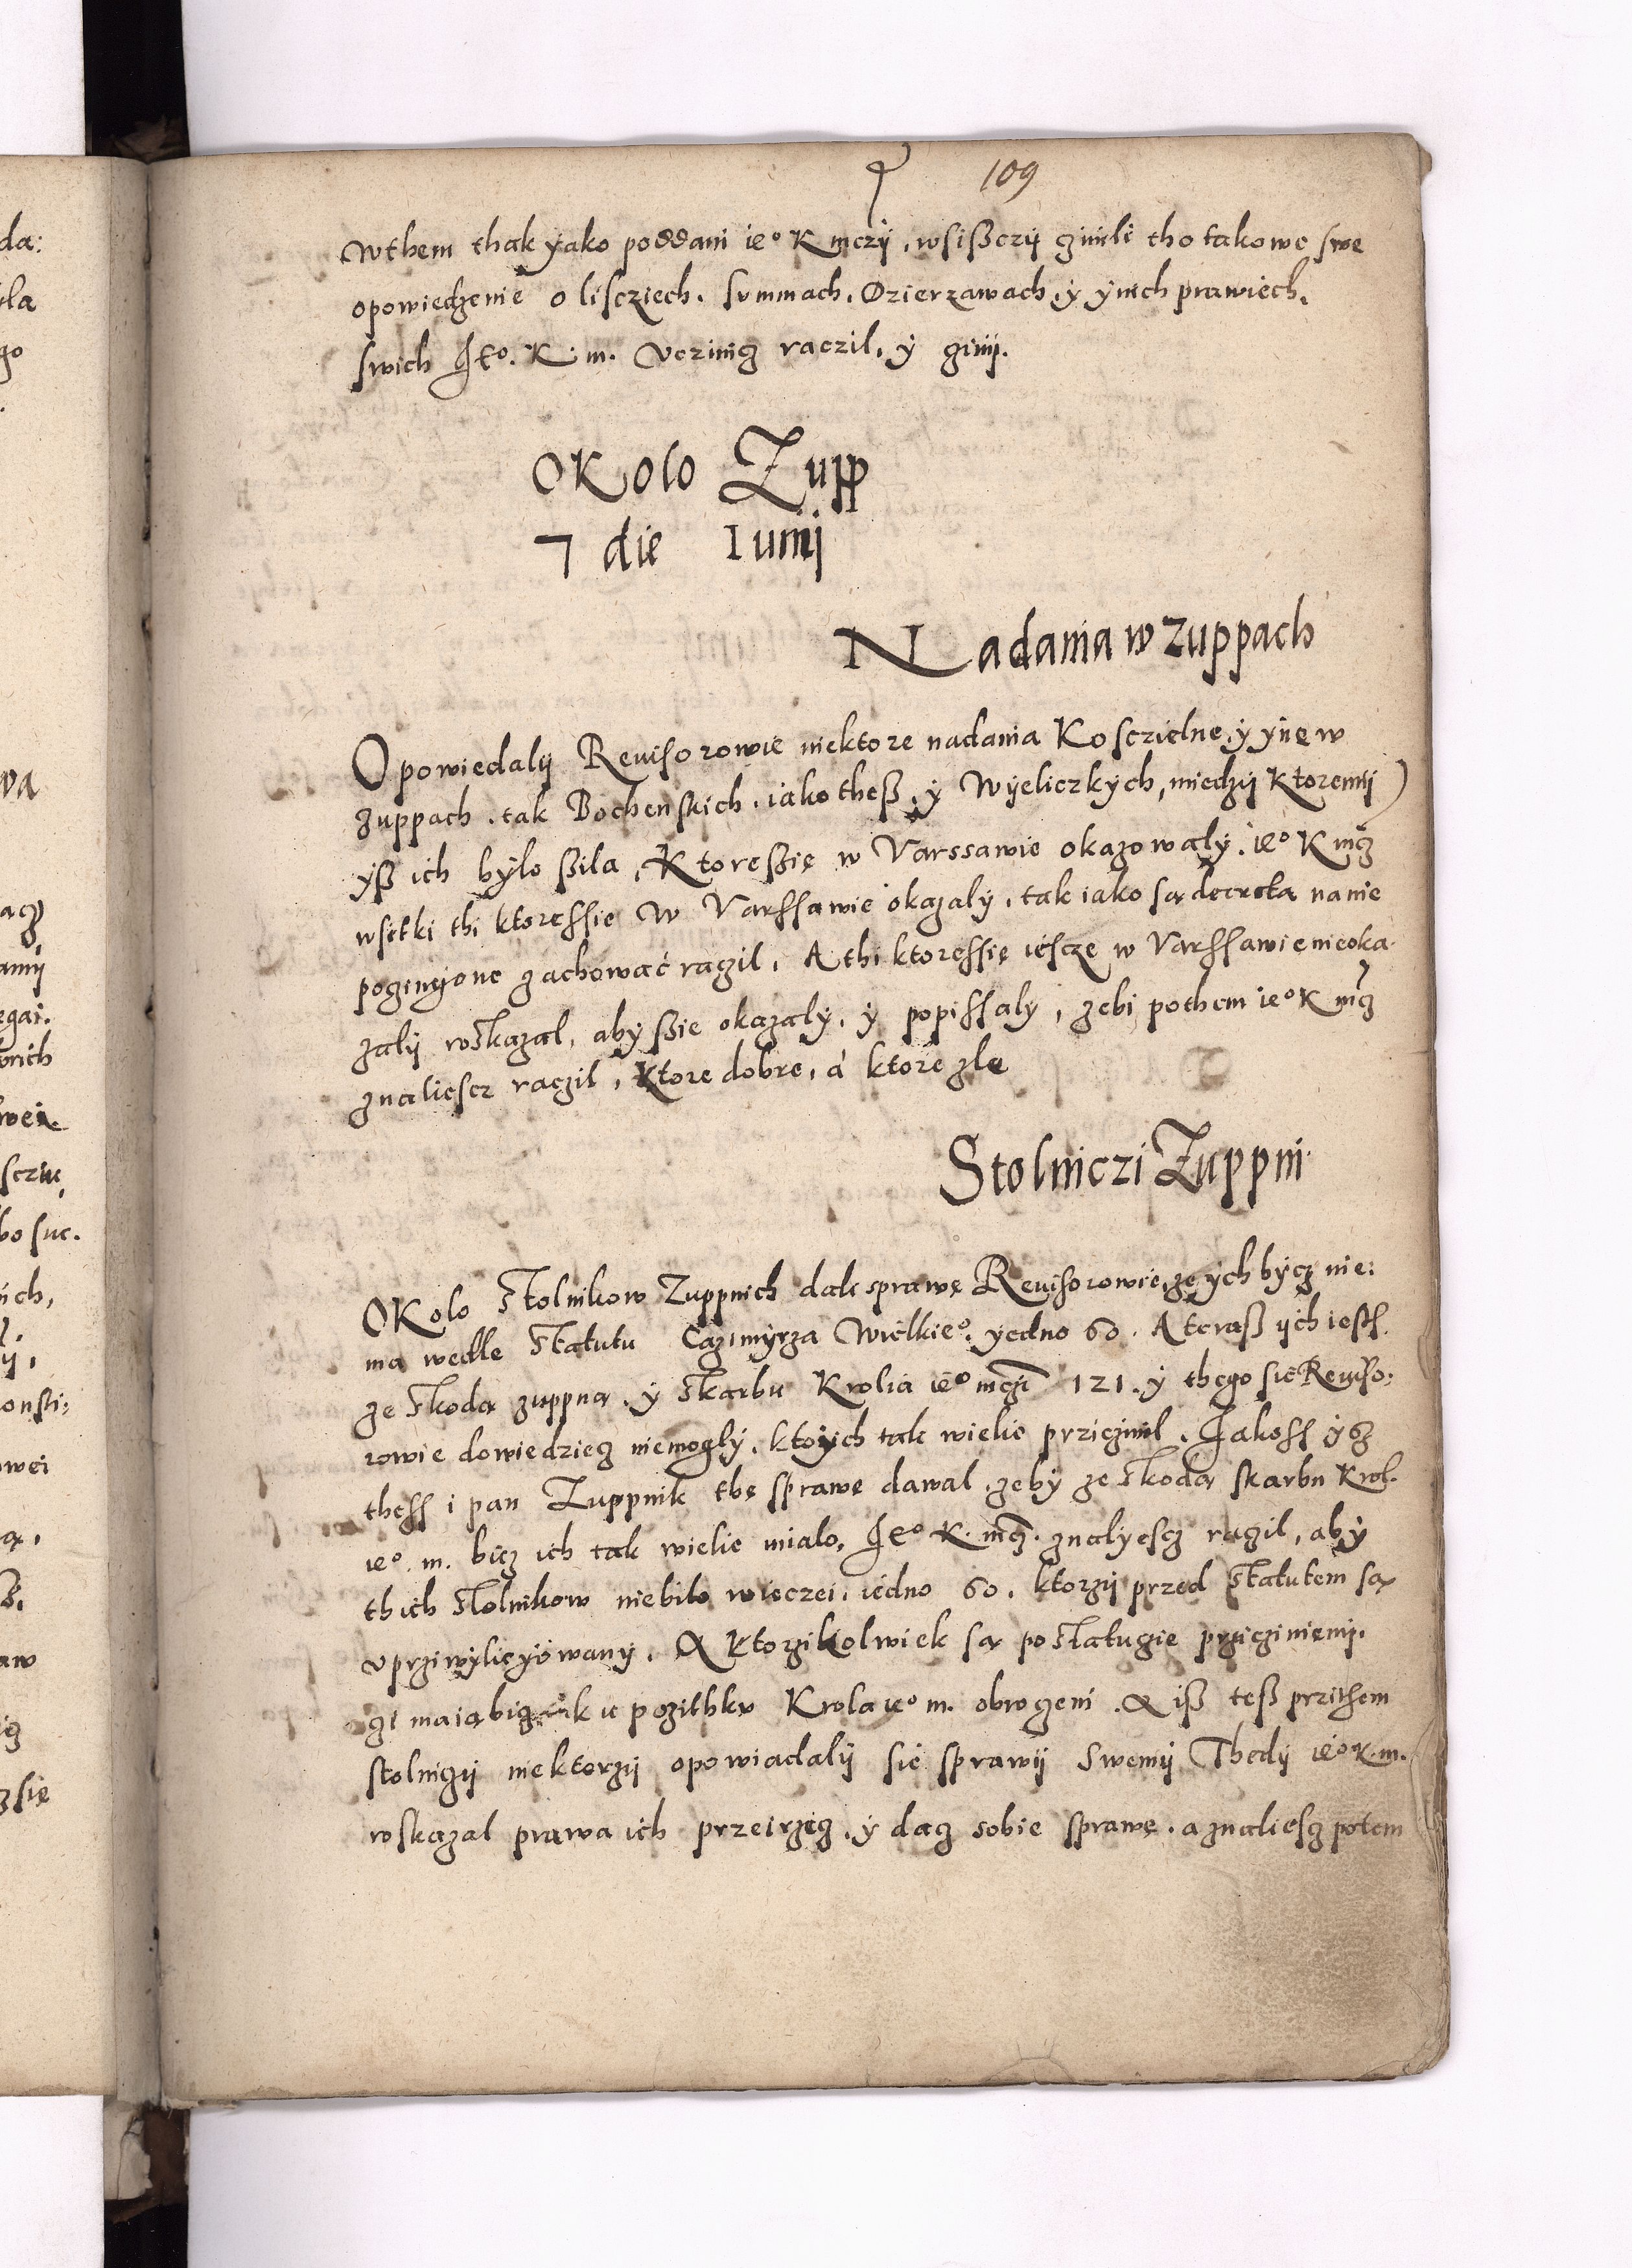 109
wthem thak yako poddani ie° K mczÿ, wsißczÿ czinili tho takowe swe
opowiedzenie o liscziech. summach. Dzierzawach. ÿ ÿnich prawiech.
swich Je°. K. m. vczinicz raczil, ÿ czinÿ.
OKolo Zupp
7 die Iunij
Nadania w zuppach
Opowiedalÿ Reuisorowie niektore nadania Kosczielne, ÿ ÿne w
zuppach. tak Bochenskich. iako theß. ÿ Wÿeliczkÿch, miedzÿ Ktoremÿ
ÿß ich bÿlo ßila, Ktoreßię w Varssawie okazowalÿ. ie° K mcz
wsitki thi ktoressie w Varssawie okazalÿ. tak iako są decreta na nie
poczinione zachować raczil. A thi ktoressię iescze w Varssawie nieoka-
zalÿ roskazal, abÿ ßie okazalÿ, ÿ popissalÿ, zebi pothem ie° K mcz
znaliescz raczil, Ktore dobre, a ktore zle
Stolniczi Zuppni
OKolo Stolnikow Zuppnich dali sprawę Reuisorowie, ze ÿch bÿcz nie:
ma wedle Statutu Cazimÿrza Wielkie°. ÿedno 60. A teraß ÿch iest.
ze skodą zuppną. ÿ skarbu Krolia ie° mczi 121. ÿ thego sie Reuiso:
rowie dowiedziecz niemoglÿ, kto ÿch tak wielie prziczinil. Jakoss ÿsz
thess i pan Zuppnik thę sprawę dawal, zebÿ ze skodą skarbu Krol.
ie°. m. bicz ich tak wielie mialo, Je° K. mcz. znalÿescz raczil, abÿ
thich stolnikow niebilo wieczei, iedno 60. ktorzÿ przed Statutem są
vprziwÿlieÿowanÿ. A Ktorzikolwiek są po statucie prziczinienÿ.
ci maią bicz ku pozithku Krola ie° m. obroczeni. A iß teß przithem
stolniczÿ niektorzÿ opowiadalÿ sie sprawÿ swemÿ Thedÿ ie° K. m.
roskazal prawa ich przeirzecz, ÿ dacz sobie sprawę. a znaliescz potem